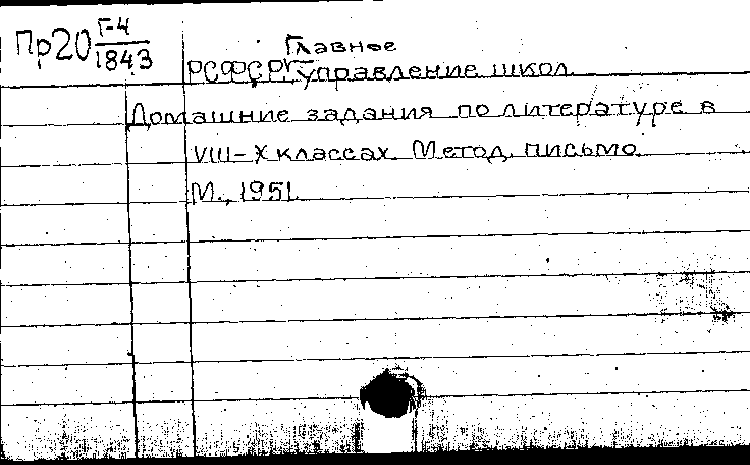 Пр20 Г-4
1843
Главное
РСФСР. управление школ.
Домашние задания по литературе в
VIII–X классах. Метод. письмо.
М., 1951.